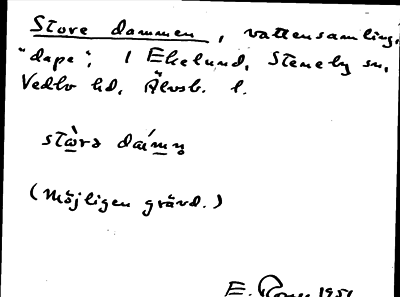 Store dammen, vattensamling,
"dape", i Ekelund, Steneby sn,
Vedbo hd, Älvsb. l.
stὼrə dám̥n̥
(Möjligen grävd.)
E. 1951